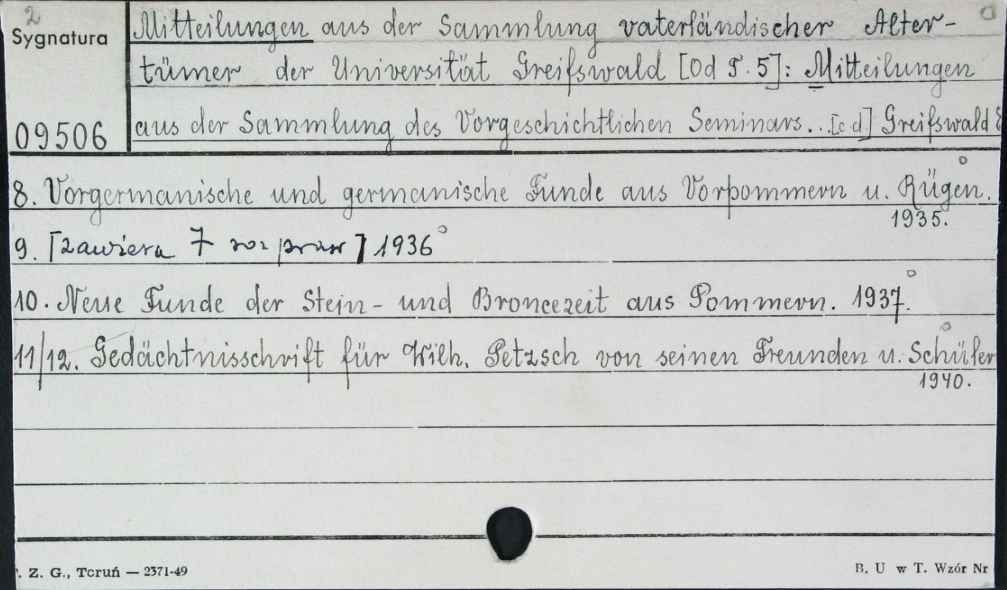 2
Sygnatura
09506
Mitteilungen aus der Sammlung vaterländischer Alter-
tümer der Universität Greifswald [Od T. 5]: Mitteilungen
aus der Sammlung des Vorgeschichtlichen Seminars.. [c d] Greifswald
8. Vorgermanische und germanische Funde aus Vorpommern u. Rügen.
1935.
9. [zawiera 7 rozpraw] 1936
10. Neue Funde der Stein- und Broncezeit aus Pommern. 1937.
11/12. Gedächtnisschrift für Wilh. Petzsch von seinen Freunden u. Schüler
1940.
. Z. G., Toruń — 2371-49
B. U w T. Wzór Nr